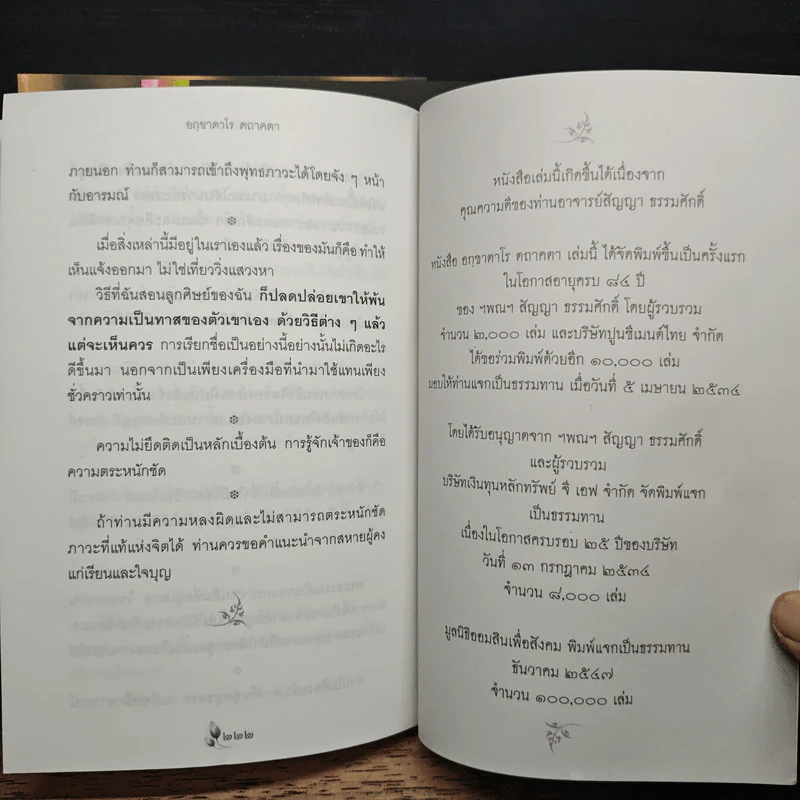 อกฺขาตาโร ตถาคตา
ภายนอก ท่านก็สามารถเข้าถึงพุทธภาวะได้โดยจัง ๆ หน้า
กับอารมณ์
เมื่อสิ่งเหล่านี้มีอยู่ในเราเองแล้ว เรื่องของมันก็คือ ทำให้
เห็นแจ้งออกมา ไม่ใช่เที่ยววิ่งแสวงหา
วิธีที่ฉันสอนลูกศิษย์ของฉัน ก็ปลดปล่อยเขาให้พ้น
จากความเป็นทาสของตัวเขาเอง ด้วยวิธีต่าง ๆ แล้ว
แต่จะเห็นควร การเรียกชื่อเป็นอย่างนี้อย่างนั้นไม่เกิดอะไร
ดีขึ้นมา นอกจากเป็นเพียงเครื่องมือที่นำมาใช้แทนเพียง
ชั่วคราวเท่านั้น
ความไม่ยึดติดเป็นหลักเบื้องต้น การรู้จักเจ้าของก็คือ
ความตระหนักชัด
ถ้าท่านมีความหลงผิดและไม่สามารถตระหนักชัด
ภาวะที่แท้แห่งจิตได้ ท่านควรขอคำแนะนำจากสหายผู้คง
แก่เรียนและใจบุญ
๒๒๒
หนังสือเล่มนี้เกิดขึ้นได้เนื่องจาก
คุณความดีของท่านอาจารย์สัญญา ธรรมศักดิ์
หนังสือ อกฺขาตาโร ตถาคตา เล่มนี้ ได้จัดพิมพ์ขึ้นเป็นครั้งแรก
ในโอกาสอายุครบ ๘๔ ปี
ของ ฯพณฯ สัญญา ธรรมศักดิ์ โดยผู้รวบรวม
จำนวน ๒,๐๐๐ เล่ม และบริษัทปูนซิเมนต์ไทย จำกัด
ได้ขอร่วมพิมพ์ด้วยอีก ๑๐,๐๐๐ เล่ม
มอบให้ท่านแจกเป็นธรรมทาน เมื่อวันที่ ๕ เมษายน ๒๕๓๔
โดยได้รับอนุญาตจาก ฯพณฯ สัญญา ธรรมศักดิ์
และผู้รวบรวม
บริษัทเงินทุนหลักทรัพย์ จี เอฟ จำกัด จัดพิมพ์แจก
เป็นธรรมทาน
เนื่องในโอกาสครบรอบ ๒๕ ปีของบริษัท
วันที่ ๑๓ กรกฎาคม ๒๕๓๔
จำนวน ๘,๐๐๐ เล่ม
มูลนิธิออมสินเพื่อสังคม พิมพ์แจกเป็นธรรมทาน
ธันวาคม ๒๕๔๗
จำนวน ๑๐๐,๐๐๐ เล่ม